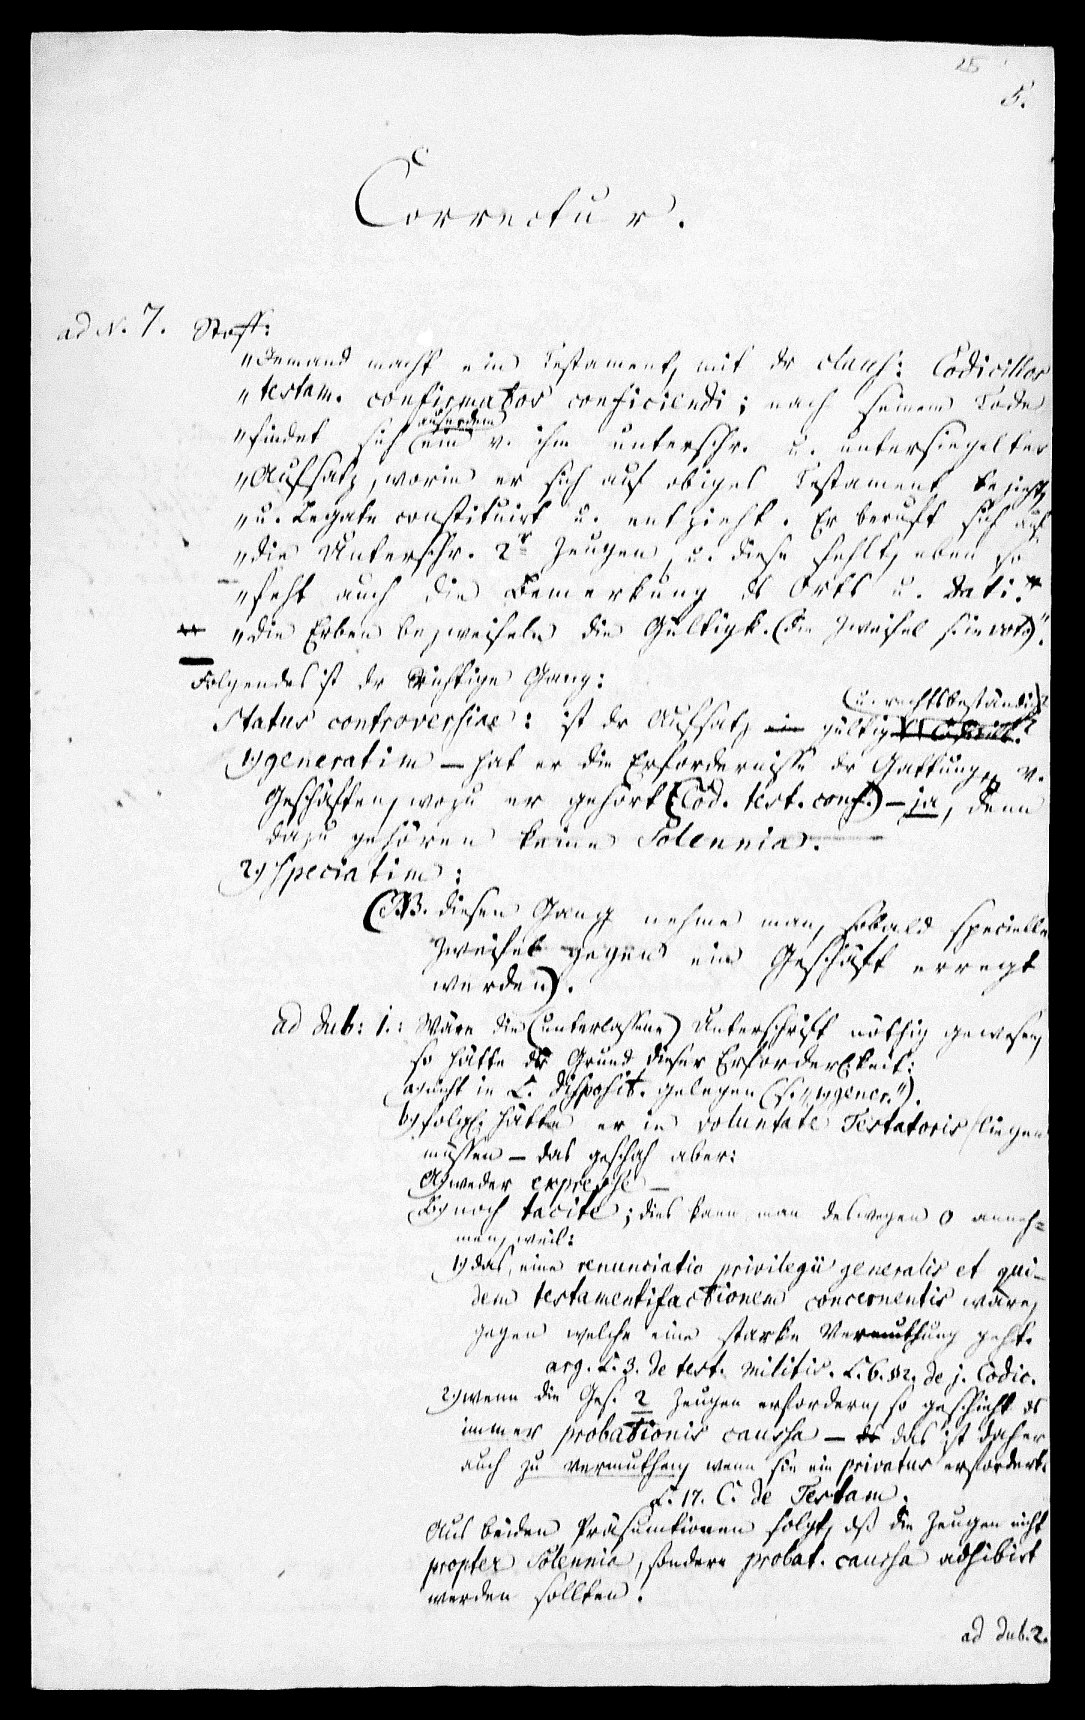 25
5.
Correctur.
ad N. 7. Stoff:
"Jemand macht ein Testament, mit dr claus: Codicillos
"testam. confirmatos conficiendi; nach seinem Tode
"findet sich außerdem ein v. ihm unterschr. u. untersiegelter
"Aufsatz, worin er sich auf obiges Testament bezieht,
"u. Legate constituirt u. entzieht. Er beruft sich auf
"die Unterschr. 2r Zeugen, u. diese fehlt, eben so
"fehlt auch die Bemerkung ds Orts u. dati.
"die Erben bezweifeln die Gültigk. (die Zweifel s. in
Folgendes ist dr richtige Gang:
(u. rechtsbeständig)?
Status controversiae: ist dr Aufsatz gültig
1.) generatim – hat er die Erfordernisse dr Gattung v.
Geschäften, wozu er gehört (Cod. test. conf.) – ja, denn
dazu gehören keine Solennia. –
2.) speciatim:
(NB. diesen Gang nehme man, sobald specielle
Zweifel gegen ein Geschäft erregt
werden).
ad dub: 1.: Wäre die (unterlassene) Unterschrift nöthig gewesen,
so hätte dr Grund dieser Erforderlichkeit:
a) nicht in L. disposit. gelegen (s. "1) gener.").
b) folgl. hätte er in voluntate Testatoris liegen
müssen – das geschah aber:
A) weder expresse –
B) noch tacite; dies kann man deswegen 0 anneh=
men, weil:
1.) das, eine renunciatio privilegii generalis et qui-
dem testamentifactionem concernentis wäre,
gegen welche eine starke Vermuthung geht.
arg. L. 3. de test. militis. L. 6. §2. de j. Codic.
2.) wenn die Ges. 2 Zeugen erfordern, so geschieht ds
immer probationis caussa – das ist daher
auch zu vermuthen, wenn sie ein privatus erfordert.
L. 17. C. de Testam.
Aus beiden Präsumtionen folgt, dß die Zeugen nicht
propter Solennia, sondern probat. caussa adhibirt
werden sollten.
ad dub. 2.